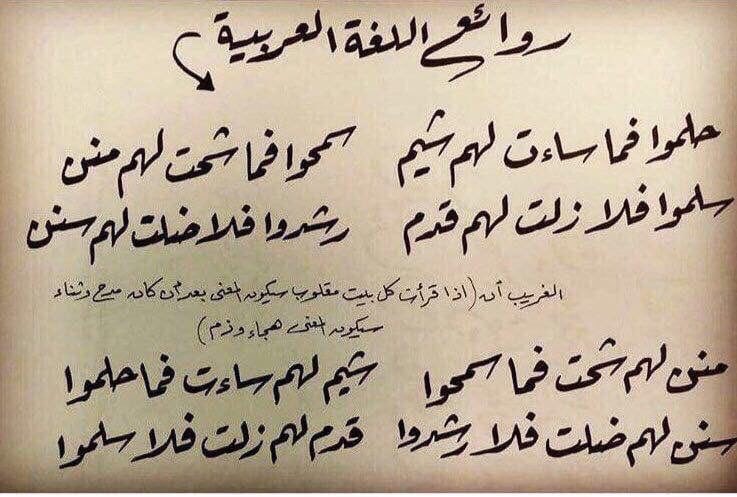 روائع اللغة العربية
حلموا فما ساءت لهم شيم سمحوا فما شحت لهم منن
سلموا فلا زلت لهم قدم رشدوا فلا ضلت لهم سنن
الغريب أن (اذا قرأت كل بيت مقلوب سيكون المعنى بعد أن كان مدح وثناء
سيكون المعنى هجاء وذم)
منن لهم شحت فما سمحوا شيم لهم ساءت فما حلموا
سنن لهم ضلت فلا رشدوا قدم لهم زلت فلا سلموا